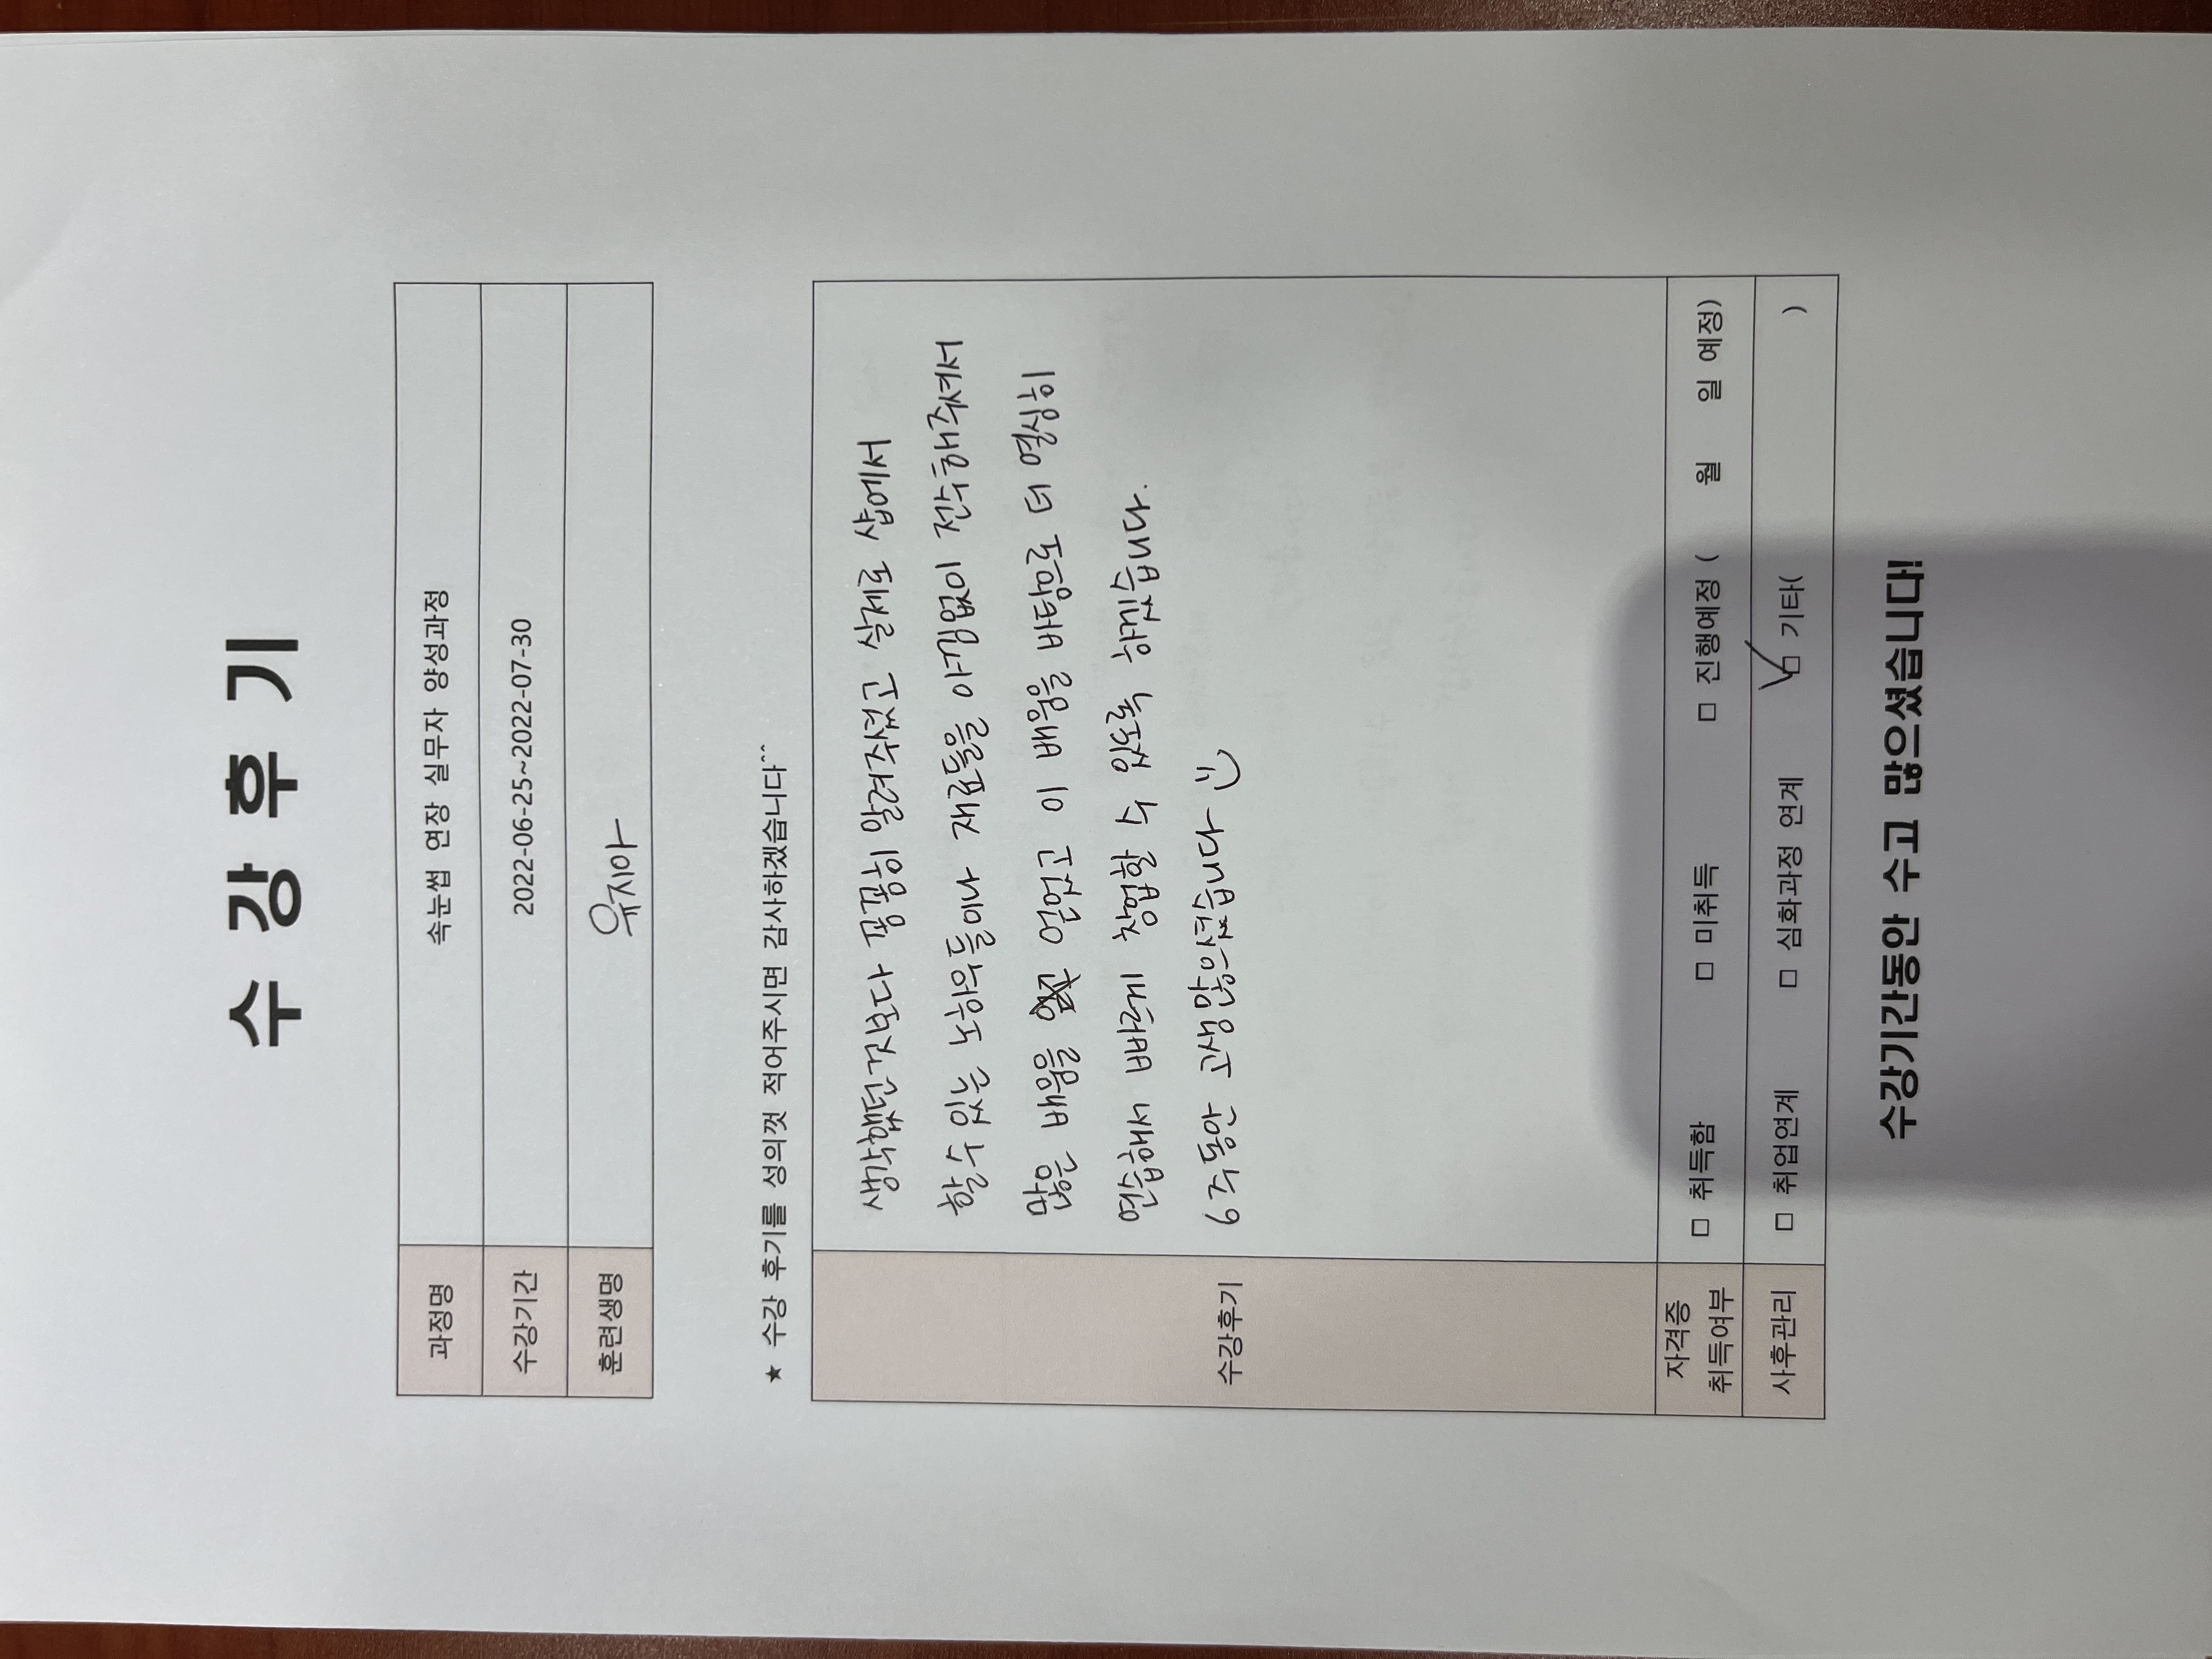 수 강 후 기
과정명 속눈썹 연장 실무자 양성과정
수강기간 2022-06-25~2022-07-30
훈련생명 유지아
★ 수강 후기를 성의껏 적어주시면 감사하겠습니다^^
수강후기
생각했던것보다 꼼꼼히 알려주셨고 실제로 샵에서
할수있는 노하우들이나 재료들을 아낌없이 전수해주셔서
많은 배움을 얻었고 이 배움을 바탕으로 더 열심히
연습해서 빠르게 창업할 수 있도록 하겠습니다.
6주동안 고생많으셨습니다
자격증
취득여부 □ 취득함 □ 미취득 □ 진행예정 ( 월 일 예정)
사후관리 □ 취업연계 □ 심화과정 연계 □ 기타( )
수강기간동안 수고 많으셨습니다!